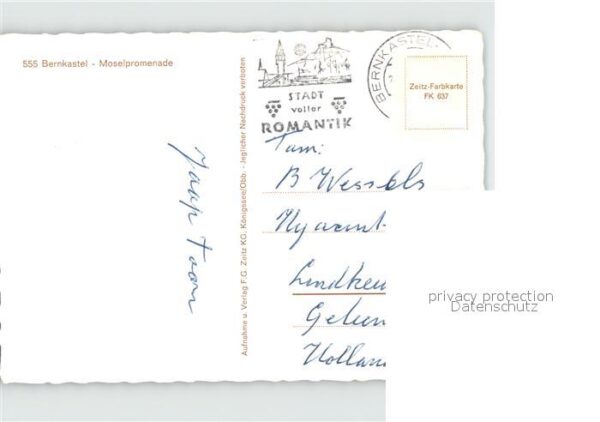 555 Bernkastel - Moselpromenade
STADT
voller
ROMANTIK
BERNKASTEL-
Zeitz-Farbkarte
FK 637
Aufnahme u. Verlag F. G. Zeitz KG, Königssee/Obb. - Jeglicher Nachdruck verboten
Jaap Toon
Fam:
B Wessels
Holland
privacy protection
Datenschutz